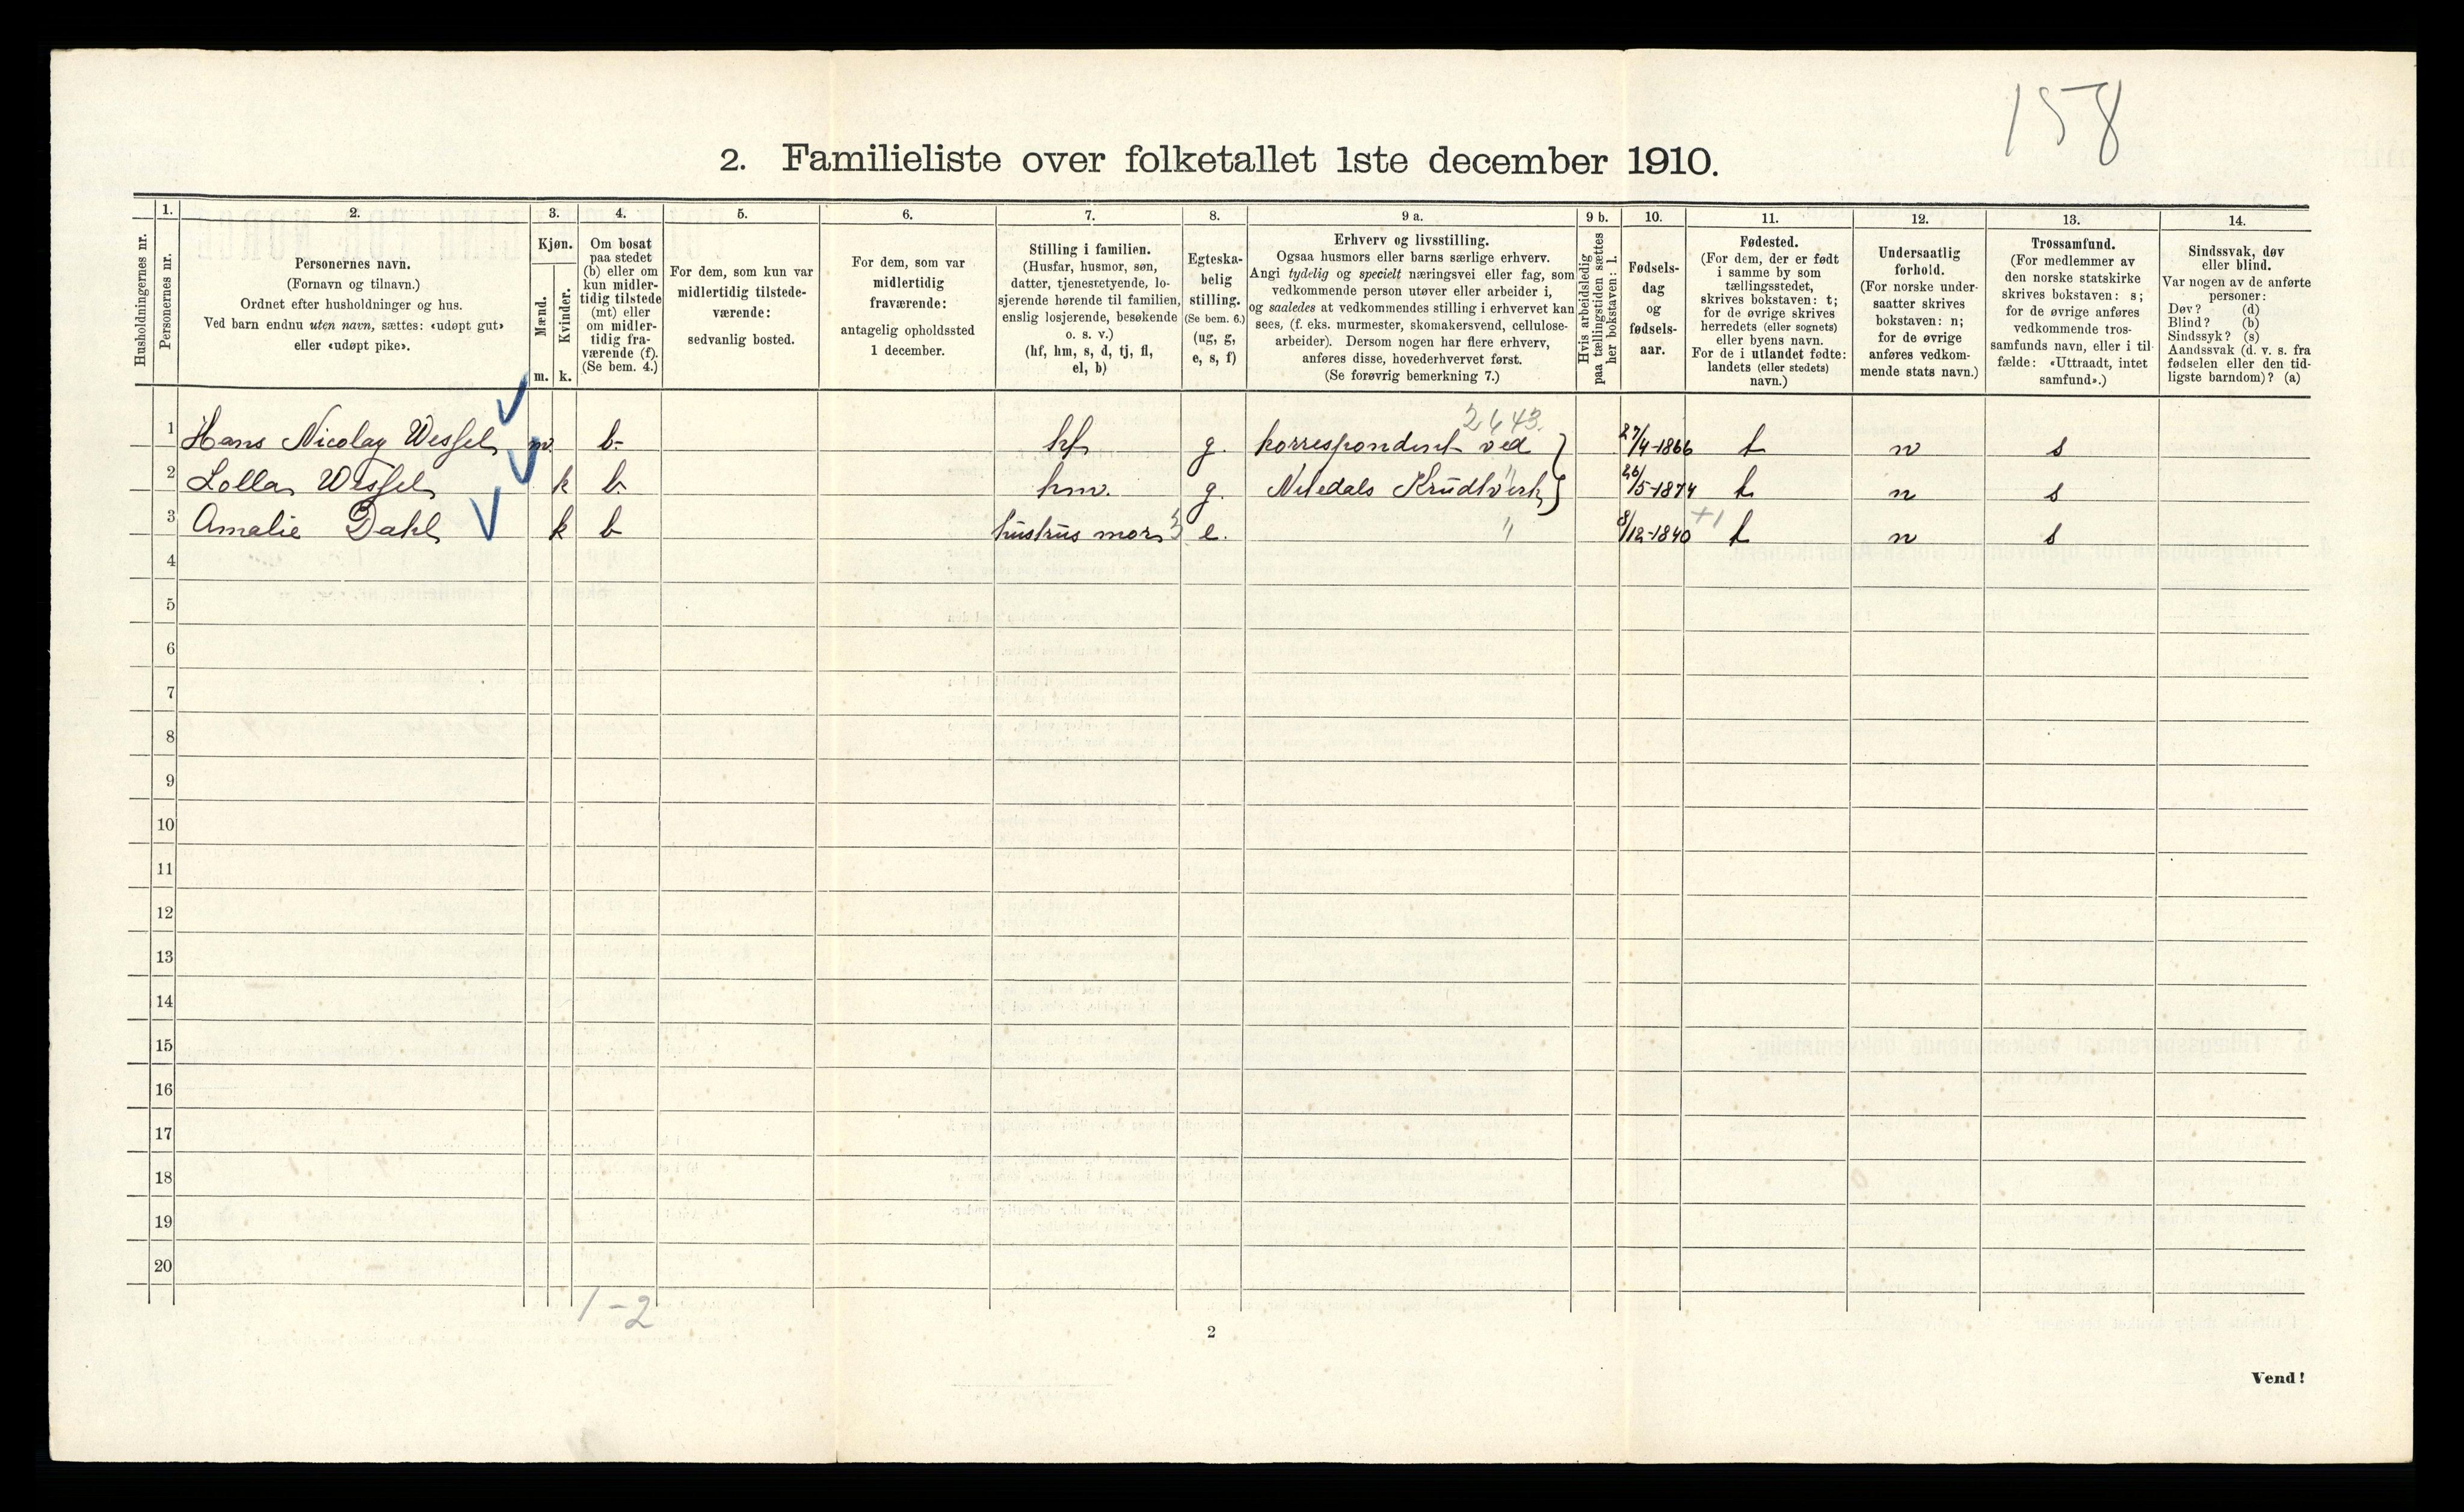 158
2. Familieliste over folketallet 1ste december 1910.
Husholdningernes nr.
1.
Personernes nr.
2.
Personernes navn.
(Fornavn og tilnavn.)
Ordnet efter husholdninger og hus.
Ved barn endnu uten navn, sættes: «udøpt gut»
eller «udøpt pike».
3.
Kjøn.
Mænd.
m.
Kvinder.
k.
4.
Om bosat
paa stedet
(b) eller om
kun midler-
tidig tilstede
(mt) eller
om midler-
tidig fra-
værende (f).
(Se bem. 4.)
5.
For dem, som kun var
midlertidig tilstede-
værende:
sedvanlig bosted.
6.
For dem, som var
midlertidig
fraværende:
antagelig opholdssted
1 december.
7.
Stilling i familien.
(Husfar, husmor, søn,
datter, tjenestetyende, lo-
sjerende hørende til familien,
enslig losjerende, besøkende
o. s. v.)
(hf, hm, s, d, tj, fl,
el, b)
8.
Egteska-
belig
stilling.
(Se bem. 6.)
(ug, g,
e, s, f)
9 a.
Erhverv og livsstilling.
Ogsaa husmors eller barns særlige erhverv.
Angi tydelig og specielt næringsvei eller fag, som
vedkommende person utøver eller arbeider i,
og saaledes at vedkommendes stilling i erhvervet kan
sees, (f. eks. murmester, skomakersvend, cellulose-
arbeider). Dersom nogen har flere erhverv,
anføres disse, hovederhvervet først.
(Se forøvrig bemerkning 7.)
9 b.
Hvis arbeidsledig
paa tællingstiden sættes
her bokstaven: l.
10.
Fødsels-
dag
og
fødsels-
aar.
11.
Fødested.
(For dem, der er født
i samme by som
tællingsstedet,
skrives bokstaven: t;
for de øvrige skrives
herredets (eller sognets)
eller byens navn.
For de i utlandet fødte:
landets (eller stedets)
navn.)
12.
Undersaatlig
forhold.
(For norske under-
saatter skrives
bokstaven: n;
for de øvrige
anføres vedkom-
mende stats navn.)
13.
Trossamfund.
(For medlemmer av
den norske statskirke
skrives bokstaven: s;
for de øvrige anføres
vedkommende tros-
samfunds navn, eller i til-
fælde: «Uttraadt, intet
samfund».)
14.
Sindssvak, døv
eller blind.
Var nogen av de anførte
personer:
Døv? (d)
Blind? (b)
Sindssyk? (s)
Aandssvak (d. v. s. fra
fødselen eller den tid-
ligste barndom)? (a)
2643.
1 Hans Nicolay Wessel m. b. hf g. korrespondent ved 27/4-1866 t n s
2 Lolla Wessel k b. hm. g. Nitedals Krudtverk 26/5-1874 t n s
3 Amalie Dahl k b hustrus mor e. " 8/12-1840 +1 t n s
4
5
6
7
8
9
10
11
12
13
14
15
16
17
18
19
20
1-2
2
Vend!